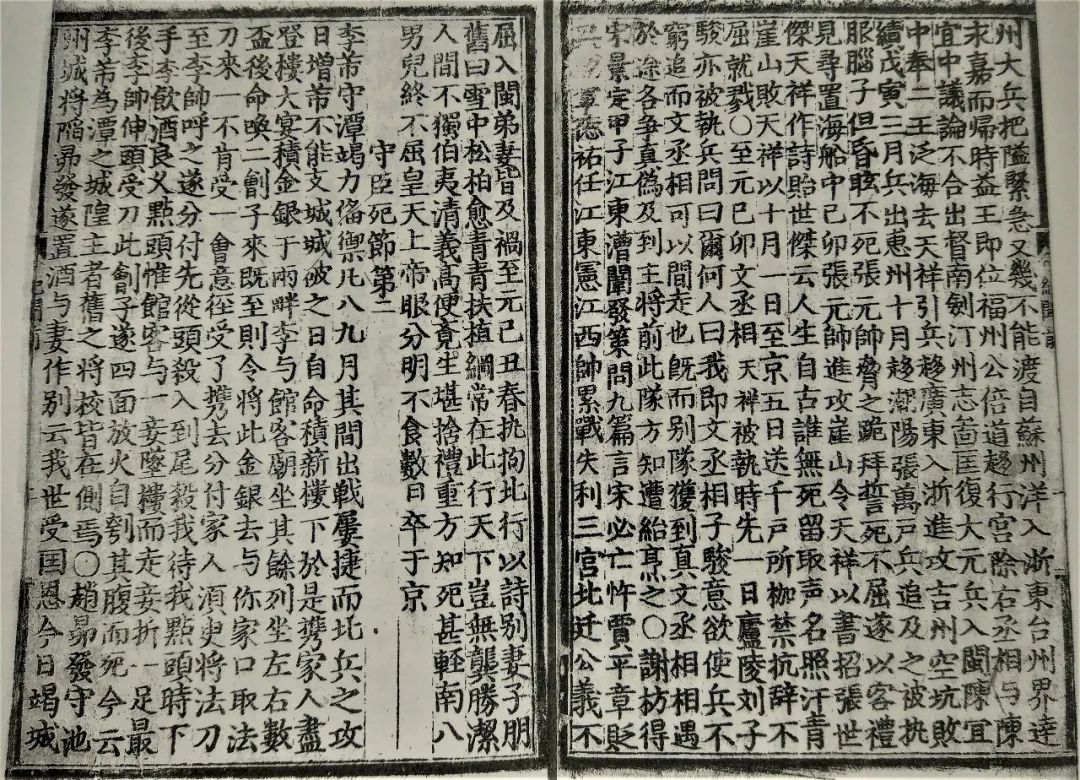 州大兵把隘緊急又幾不能渡自蘇州洋入浙東台州界達
永嘉而歸時益王即位福州公倍道趍行宮除右丞相与陳
宜中議論不合出督南劍汀州志啚匡復大元兵入閩陳宜
中奉二王泛海去天祥引兵趍廣東入浙進攻吉州空坑敗
績戊寅三月兵出惠州十月趍潮陽張萬戶兵追及之被执
服腦子但昏眩不死張元帥脅之跪拜誓死不屈遂以客禮
見尋置海船中己卯張元帥進攻崖山令天祥以書招張世
傑天祥作詩貽世傑云人生自古誰無死留取声名照汗青
崖山敗天祥以十月一日至京五日送千戶所枷禁抗辞不
屈就戮○至元己卯文丞相天祥被執時先一日廬陵刘子
駿亦被執兵問曰爾何人曰我即文丞相子駿意欲使兵不
窮追而文丞相可以間走也旣而别隊獲到真文丞相相遇
於途各争真偽及到主將前此隊方知遭紿烹之○謝枋得
宋景定甲子江東漕闈發策問九篇言宋必亡忤賈平章貶
軍德祐任江東憲江西帥累戰失利三宮北迁公義不
屈入閩弟妻皆及禍至元己丑春执拘北行以詩别妻子朋
舊曰雪中松柏愈青青扶植綱常在此行天下豈無龔勝潔
人間不獨伯夷清義高便竟生堪捨禮重方知死甚輕南八
男兒終不屈皇天上帝眼分明不食數日卒于京
守臣死節第二
李芾守潭竭力偹禦凡八九月其間出戰屢捷而北兵之攻
日增芾不能支城城破之日自命積薪樓下於是携家人盡
登樓大宴積金銀于兩畔李与館客廟坐其餘列坐左右數
盃後命喚二劊子來既至則令將此金銀去与你家口取法
刀來一不肯受一會意徑受了携去分付家人須臾將法刀
至李帥呼之遂分付先從頭殺入到尾殺我待我點頭時下
手李飲酒良乆點頭惟館客与一妾墜樓而走妾折一足最
後李帥伸頭受刀此劊子遂四面放火自刳其腹而死今云
李芾為潭之城隍主者舊之將校皆在側焉○趙昴發守池
州城將陷昴發遂置酒与妻作别云我世受国恩今日竭城